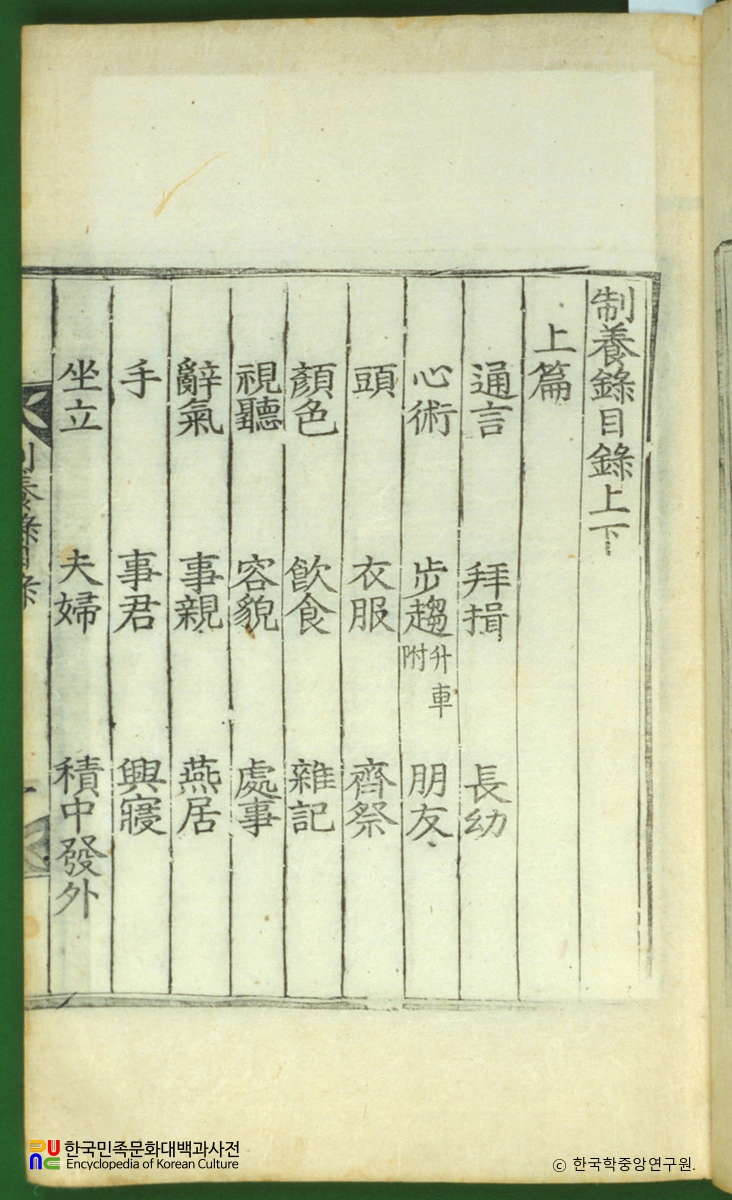 制養錄目錄上下
上篇
通言 拜揖 長幼
心術 步趨 升車附 朋友
頭 衣服 齊祭
顏色 飮食 雜記
視聽 容貌 處事
辭氣 事親 燕居
手 事君 興寢
坐立 夫婦 積中發外
制養錄目錄
한국민족문화대백과사전
Encyclopedia of Korean Culture
© 한국학중앙연구원.